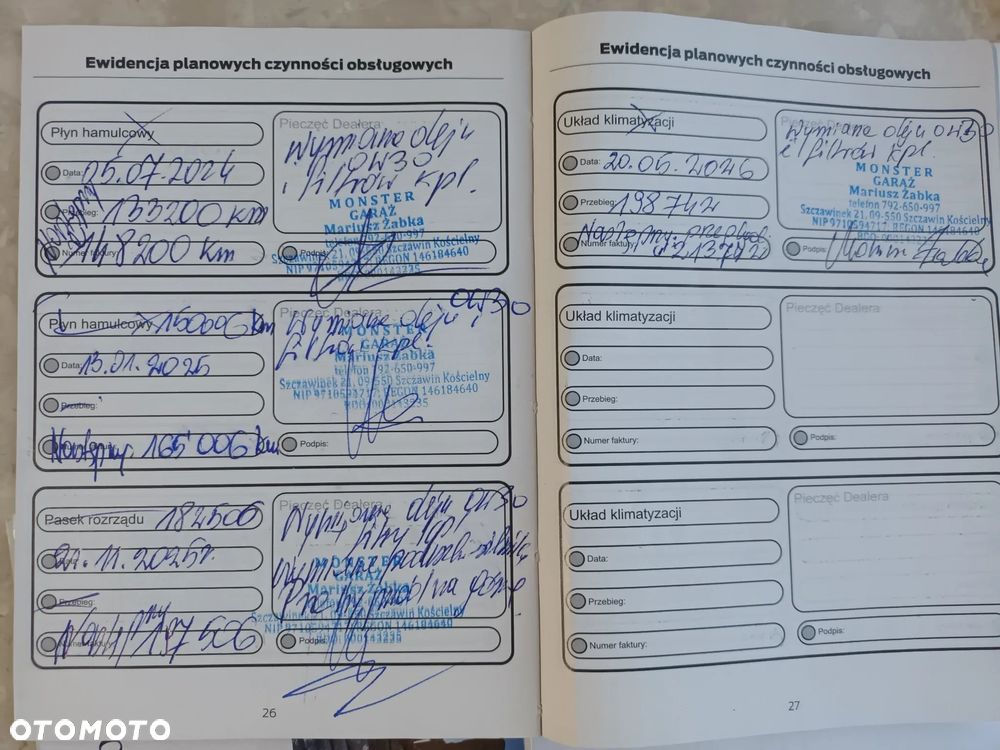 Ewidencja planowych czynności obsługowych
Płyn hamulcowy
Data: 05.07.2024
133200 km
148200 km
Numer faktury:
Pieczęć Dealera
Wymiana oleju
0W30
i filtrów kpl.
MONSTER
GARAŻ
Mariusz Żabka
telefon 792-650-997
Szczawinek 21, 09-550 Szczawin Kościelny
NIP 9710594717, REGON 146184640
BDO: 000143235
Podpis:
Płyn hamulcowy 150006 km
Data: 13.01.2025
Przebieg:
Następny 165006 km
Pieczęć Dealera
0W30
Wymiana oleju i
filtrów kpl.
MONSTER
Mariusz Żabka
telefon 792-650-997
Szczawinek 21, 09-550 Szczawin Kościelny
NIP 9710594717, REGON 146184640
BDO: 000143235
Podpis:
Pasek rozrządu 182506
11.2025r
Przebieg:
197506
Numer faktury:
Pieczęć Dealera
oleju 0W30
MONSTER
GARAŻ
Mariusz Żabka
Podpis:
26
Ewidencja planowych czynności obsługowych
Układ klimatyzacji
Data: 20.05.2026
Przebieg: 198742
Następny przebieg
Numer faktury: 213742
Pieczęć Dealera
Wymiana oleju 0W30
i filtrów kpl.
MONSTER
GARAŻ
Mariusz Żabka
telefon 792-650-997
Szczawinek 21, 09-550 Szczawin Kościelny
NIP 9710594717, REGON 146184640
Podpis:
Układ klimatyzacji
Data:
Przebieg:
Numer faktury:
Pieczęć Dealera
Podpis:
Układ klimatyzacji
Data:
Przebieg:
Numer faktury:
Pieczęć Dealera
Podpis:
27
OTOMOTO